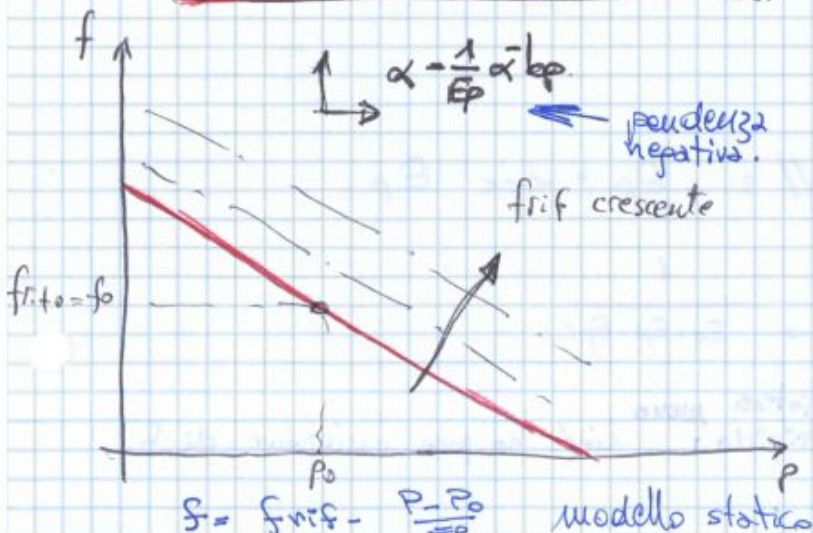 f
α - 1/Ep α - bp
pendenza
negativa.
frif crescente
frifo = fo
Po
P
f = frif - P - Po / Ep modello statico